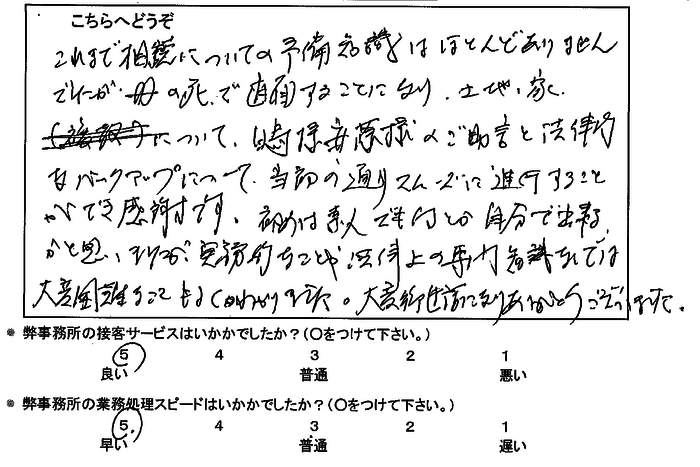 こちらへどうぞ
これまで相続についての予備知識はほとんどありません
でしたが、母の死で直面することになり、土地、家、
について、嶋様安原様のご助言と法律的
なバックアップについて、当初の通りスムーズに進行すること
ができ感謝です。初めは素人でも何とか自分で出来る
かと思いましたが、実務的なことや法律上の専門知識なしでは
大変困難なこともよくわかりました。大変御世話になりありがとうございました。
* 弊事務所の接客サービスはいかかでしたか？（○をつけて下さい。）
5 4 3 2 1
良い 普通 悪い
* 弊事務所の業務処理スピードはいかかでしたか？（○をつけて下さい。）
5. 4 3 2 1
早い 普通 遅い